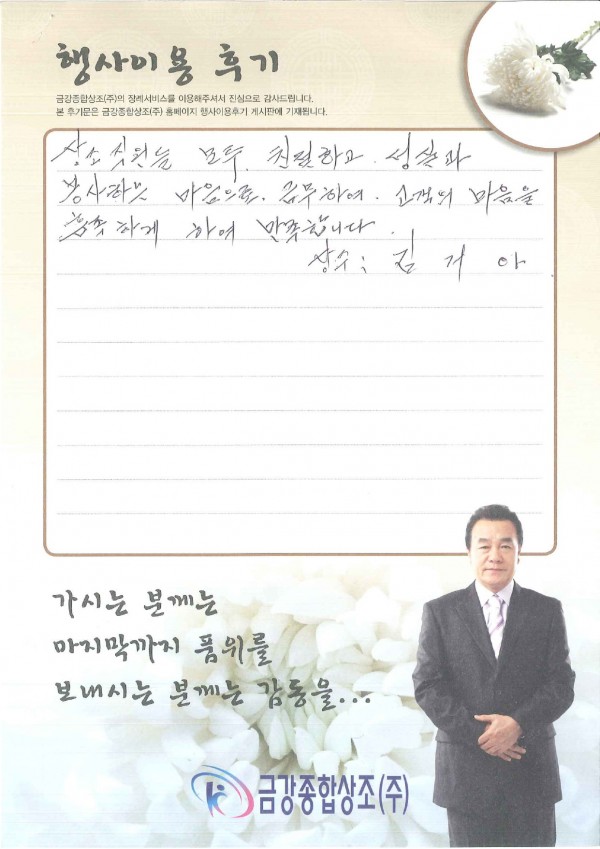 행사이용 후기
금강종합상조(주)의 장례서비스를 이용해주셔서 진심으로 감사드립니다.
본 후기문은 금강종합상조(주) 홈페이지 행사이용후기 게시판에 기재됩니다.
상조 직원들 모두. 친절하고. 성실과
봉사하는 마음으로. 근무하여. 고객의 마음을
흡족하게 하여 만족합니다.
상주: 김 거 아
가시는 분께는
마지막까지 품위를
보내시는 분께는 감동을...
금강종합상조(주)